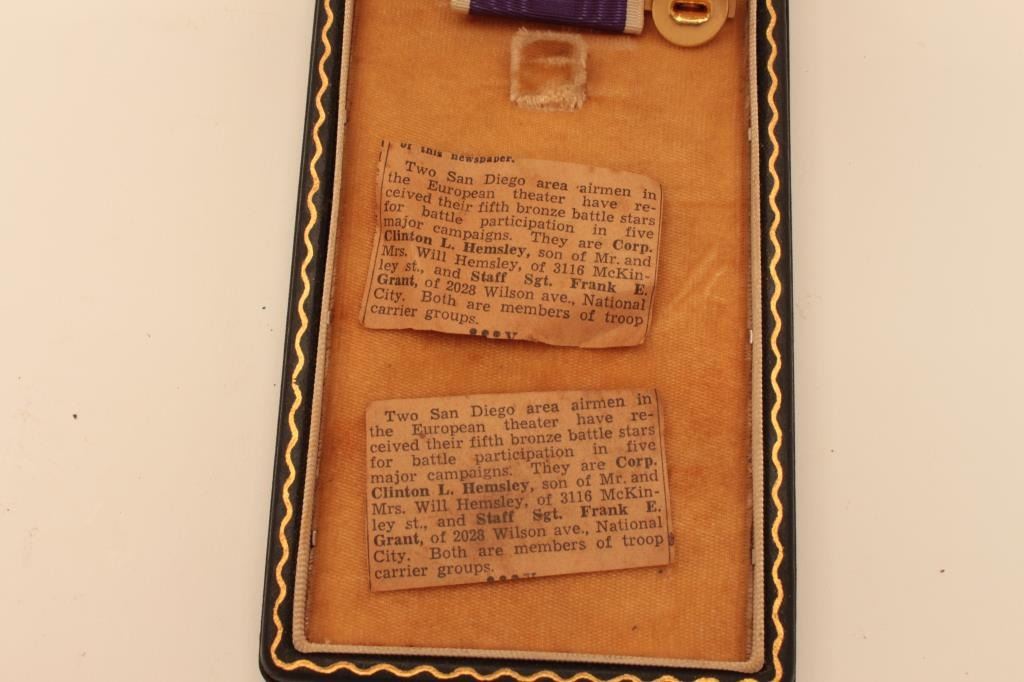 of this newspaper.
Two San Diego area airmen in
the European theater have re-
ceived their fifth bronze battle stars
for battle participation in five
major campaigns. They are Corp.
Clinton L. Hemsley, son of Mr. and
Mrs. Will Hemsley, of 3116 McKin-
ley st., and Staff Sgt. Frank E.
Grant, of 2028 Wilson ave., National
City. Both are members of troop
carrier groups.
Two San Diego area airmen in
the European theater have re-
ceived their fifth bronze battle stars
for battle participation in five
major campaigns. They are Corp.
Clinton L. Hemsley, son of Mr. and
Mrs. Will Hemsley, of 3116 McKin-
ley st., and Staff Sgt. Frank E.
Grant, of 2028 Wilson ave., National
City. Both are members of troop
carrier groups.